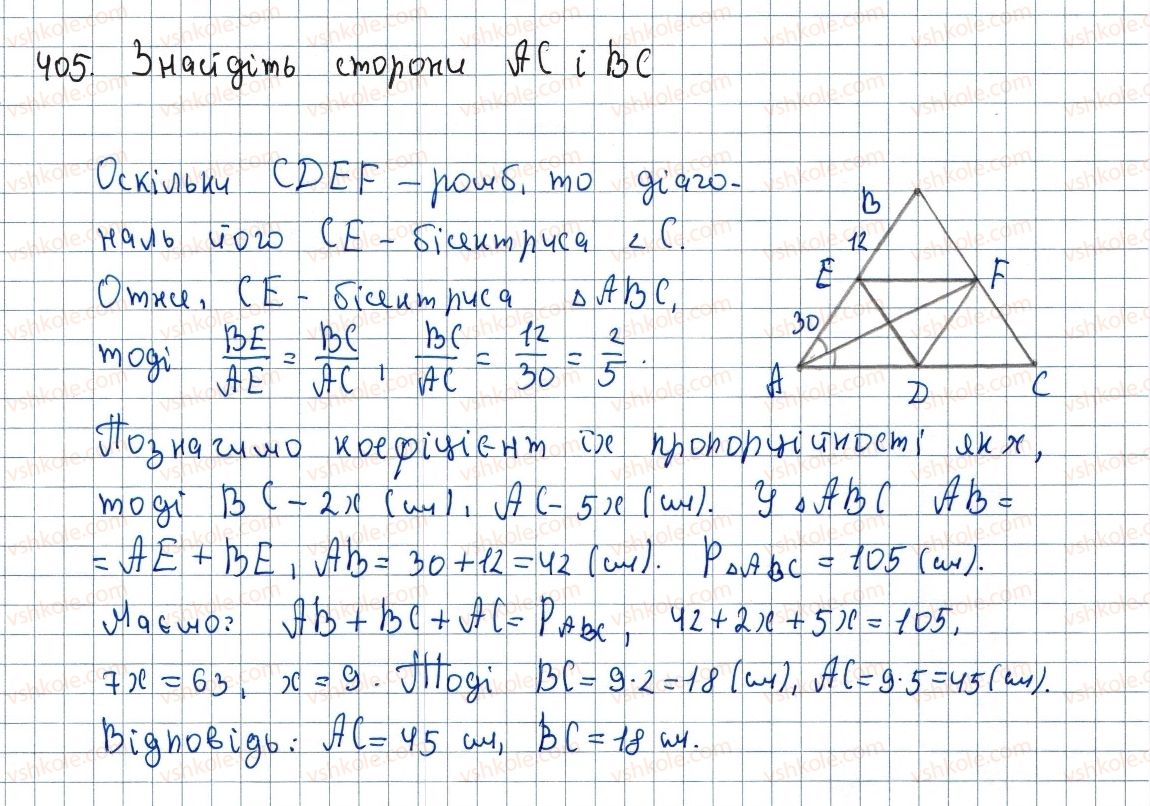 405. Знайдіть сторони AC і BC
Оскільки CDEF – ромб, то діаго-
наль його CE – бісектриса ∠C.
Отже, CE – бісектриса △ABC,
тоді BE/AE = BC/AC, BC/AC = 12/30 = 2/5.
Позначимо коефіцієнт їх пропорційності як x,
тоді BC – 2x (см), AC – 5x (см). У △ABC AB =
= AE + BE, AB = 30 + 12 = 42 (см). P△ABC = 105 (см).
Маємо: AB + BC + AC = PABC, 42 + 2x + 5x = 105,
7x = 63, x = 9. Тоді BC = 9·2 = 18 (см), AC = 9·5 = 45 (см).
Відповідь: AC = 45 см, BC = 18 см.
B
12
E
F
30
A
D
C
vshkole.com